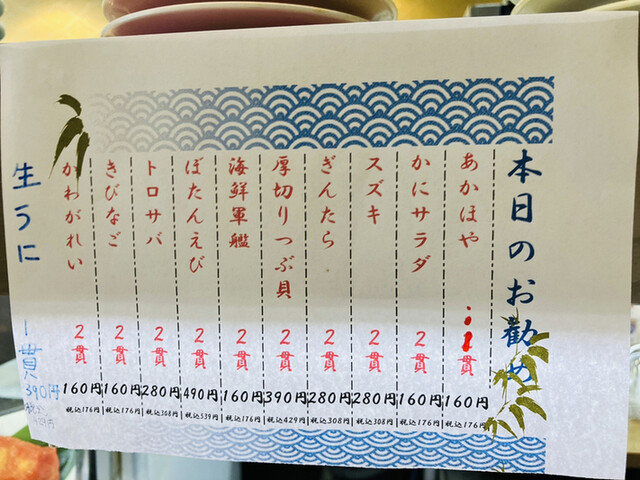 本日のお勧め
あかほや 1貫 160円 税込176円
かにサラダ 2貫 160円 税込176円
スズキ 2貫 280円 税込308円
ぎんたら 2貫 280円 税込308円
厚切りつぶ貝 2貫 390円 税込429円
海鮮軍艦 2貫 160円 税込176円
ぼたんえび 2貫 490円 税込539円
トロサバ 2貫 280円 税込308円
きびなご 2貫 160円 税込176円
かわがれい 2貫 160円 税込176円
生うに 一貫 390円